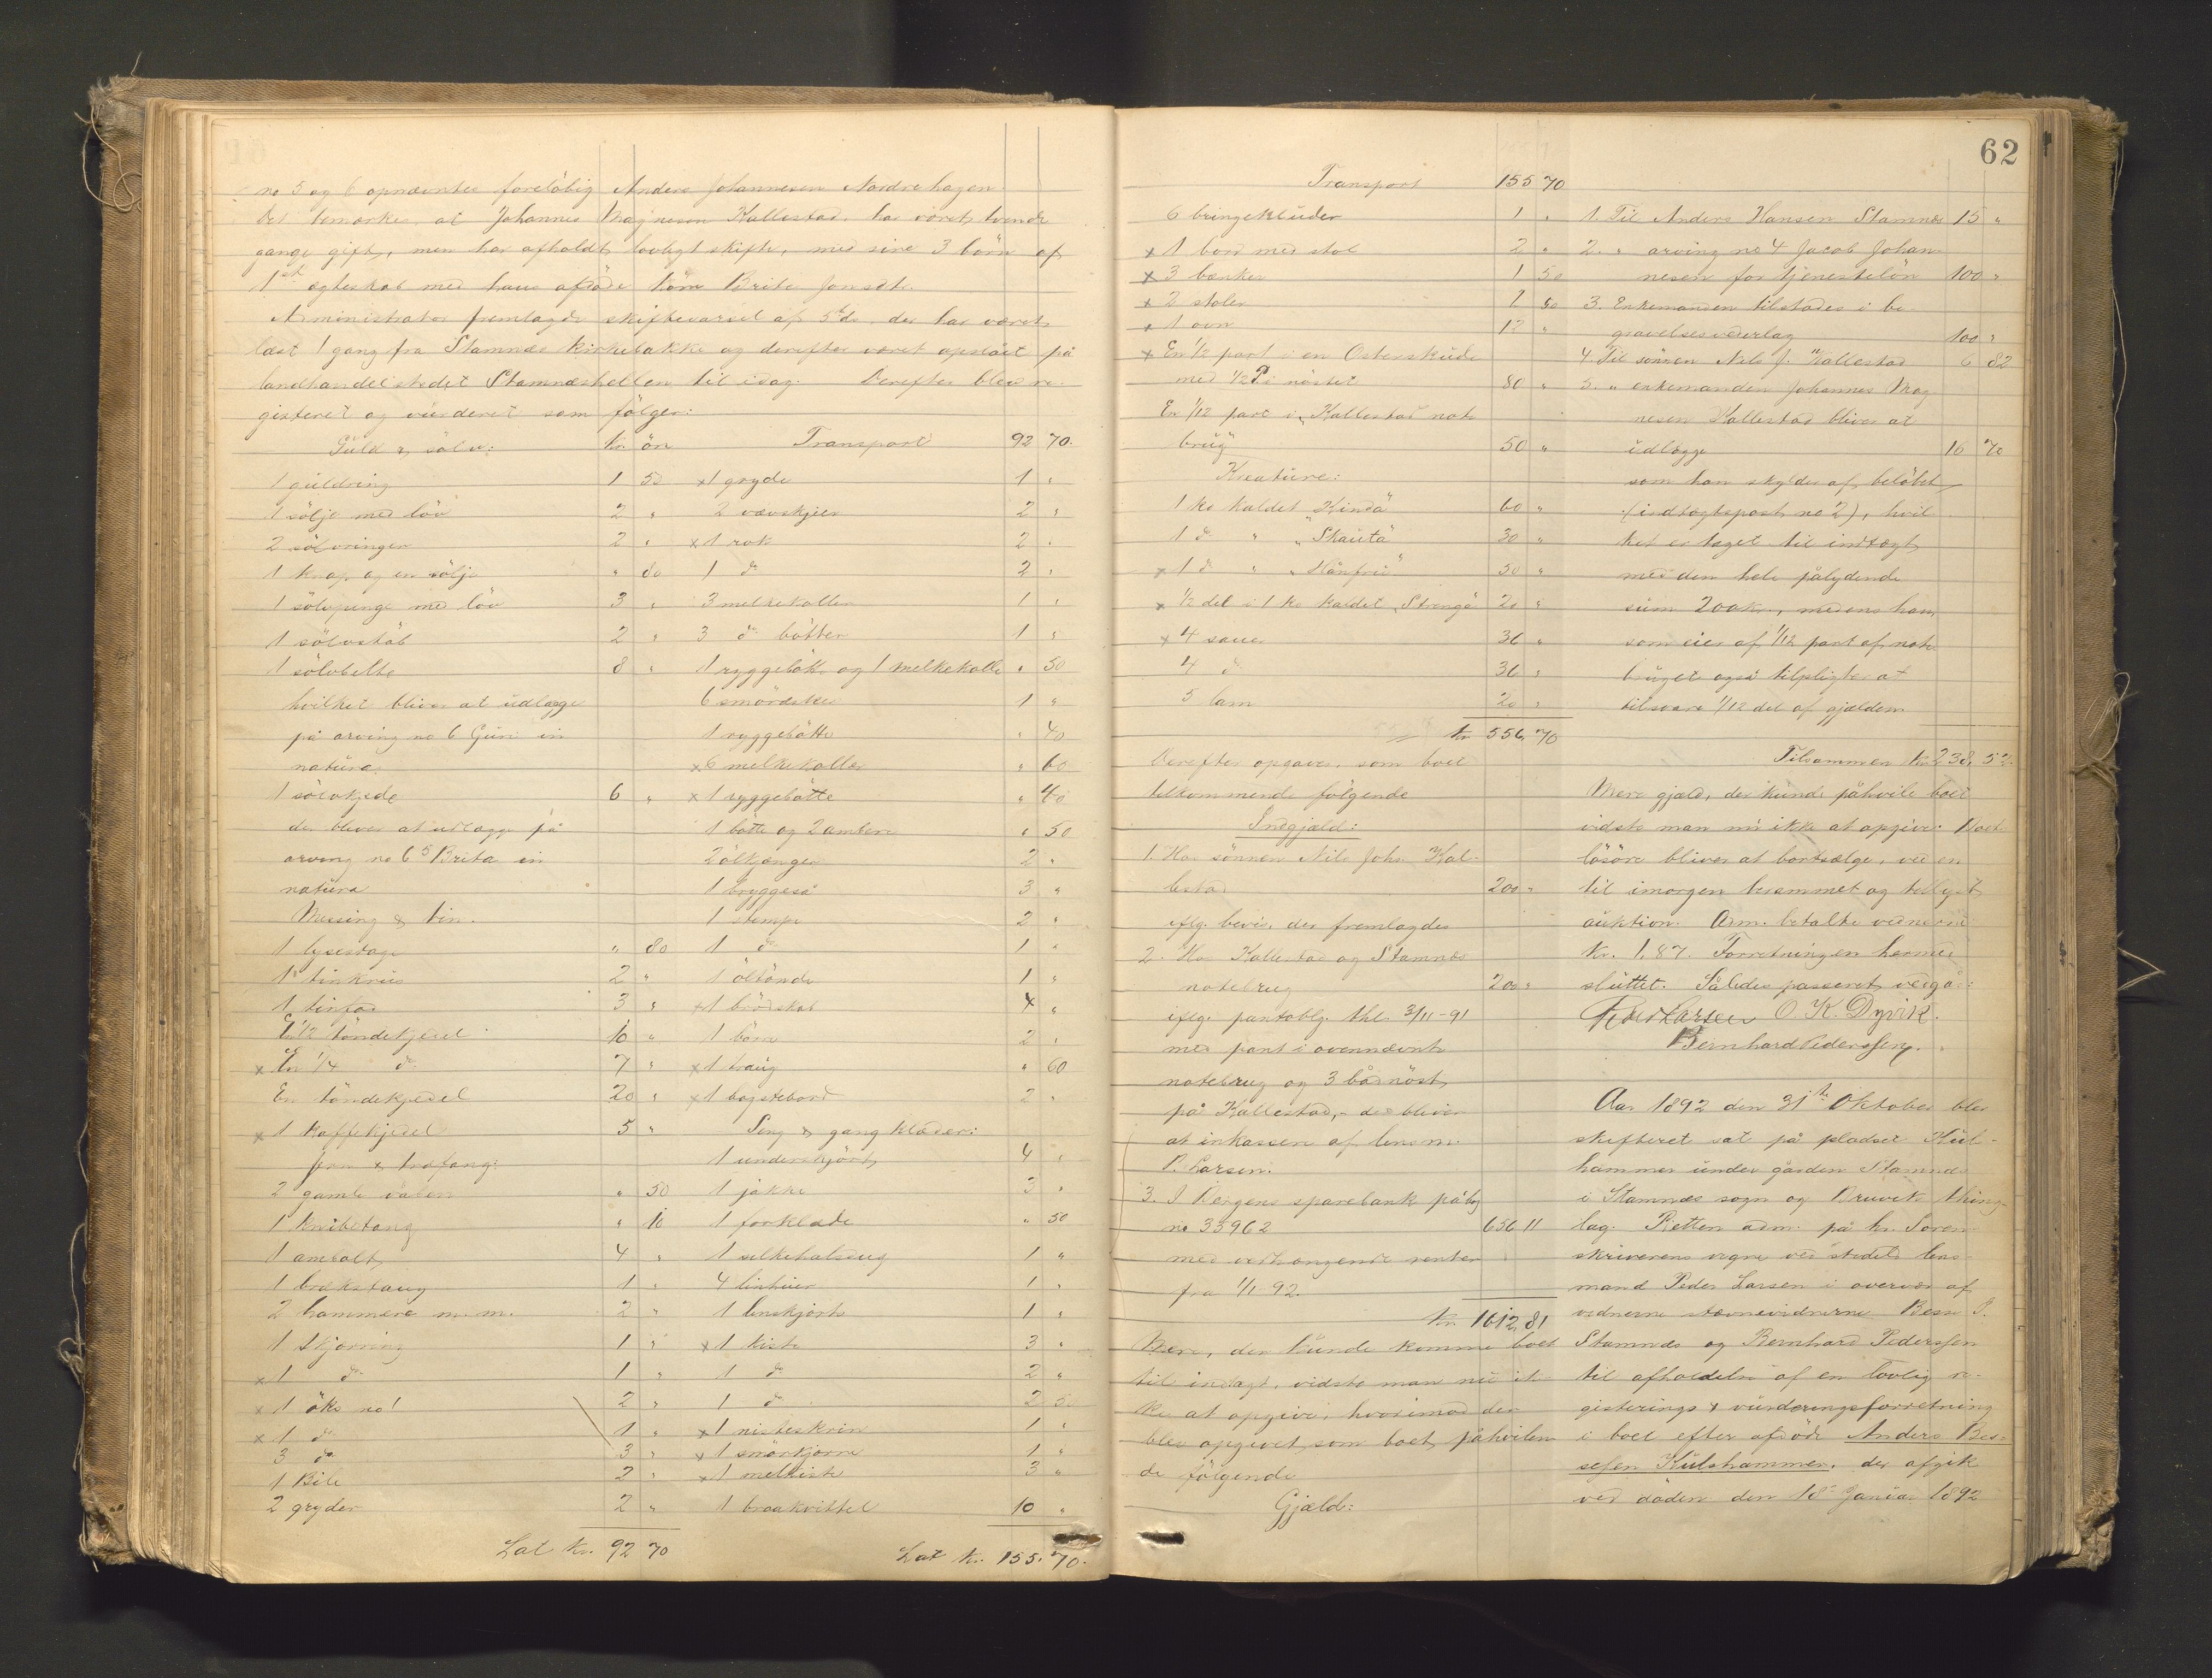 no 5 og 6 opnævntes foreløbig Anders Johannesen Nordrehagen.
Det bemærkes, at Johannes Magnesen Kallestad har været tvende
gange gift, men har afholdt lovligt skifte, med sine 3 børn af
1st ægteskab med hans afdøde kone Brita Jonsdtr.
Administrator fremlagde skiftevarsel af 5te ds. der har været
læst 1 gang fra Stamnæs kirkebakke og derefter været opslået på
landhandelstedet Stamnæshellen til idag. Derefter blev re-
gisteret og vurderet som følger:
Guld & sølv: Kr. ör
1 guldring 1 50
1 sölje med löv 2 "
2 sölvringer 2 "
1 knap og en sölje " 80
1 sölvpenge med löv 3 "
1 sölvstab 2 "
1 sölvbelte 8 "
hvilket bliver at udlægge
på arving no 6 Guri in
natura.
1 sölvkjede 6 "
der bliver at udlægge på
arving no 5 Brita in
natura
Messing & tin.
1 lysestage " 80
1 tinkrus 2 "
1 tinfad 3 "
En 1/2 töndekjedel 10 "
x En 1/4 do 7 "
En töndekjedel 20 "
x 1 kaffekjedel 5 "
Jern & træfang:
2 gamle " 50
1 knibetang " 10
1 ambolt 4 "
1 brækstang 1 "
2 hammere m. m. 2 "
1 Skjæring 1 "
x 1 do 1 "
x 1 öks no 1 2 "
x 1 do 1 "
3 do 3 "
1 Bile 2 "
2 gryder 2 "
Lat Kr. 92 70
Transport 92 70.
x 1 gryde 1 "
2 vævskjeer 2 "
x 1 rok 2 "
1 do 2 "
3 melkekoller 1 "
3 do bötter 1 "
1 ryggebötte og 1 melkekolle " 50
6 smördsker 1 "
1 ryggebötte " 40
x 6 melkekoller " 60
x 1 ryggebötte " 40
1 bötte og 2 ambere " 50
2 ölkjænger 2 "
1 bryggeså 3 "
1 stampe 2 "
1 do 1 "
1 öltönde 1 "
x 1 brödskab 4 "
1 2 "
x 1 traug " 60
x 1 bagstebord 2 "
Seng & gangklæder:
1 underskjört 4 "
1 jakke 3 "
1 forklæde " 50
1 silkehalsdug 1 "
4 lintuer 1 "
1 linskjorte 1 "
x 1 kiste 3 "
1 do 2 "
1 do 2 50
x 1 nisteskrin 1 "
x 1 smörkjærne 1 "
x 1 melkiste 3 "
1 braakvittel 10 "
Lat Kr. 155. 70.
62
Transport 155 70
6 bringekluder 1 "
x 1 bord med stol 2 "
x 3 bænker 1 50
x 2 stoler 1 50
x 1 ovn 12 "
x En 1/2 part i en Osterskude
med 1/2 P i nöstet 80 "
En 1/12 part i "Kallestad not-
brug" 50 "
Kreature:
1 ko kaldet "Kinda" 60 "
1 do " "Skauta" 30 "
x 1 do " " 50 "
x 1/2 del i 1 ko kaldet "Strengå" 20 "
x 4 sauer 36 "
4 do 36 "
5 lam 20 "
Kr. 556, 70
Derefter opgaves, som boet
tilkommende følgende
Indgjæld:
1. Hos sönnen Nils Johs. Kal-
lestad 200 "
iflg. bevis, der fremlagdes
2. Hos Kallestad og Stamnæs
notebrug 200 "
iflg. pantoblg. thl. 3/11-91
med pant i ovennævnte
notebrug og 3 bådnöst
på Kallestad, - der bliver
at inkassere af lensm.
P. Larsen.
3. I Bergens sparebank på bog
no 33962 656 11
med vedhængende renter
fra 1/1-92.
Kr. 1612, 81
Mere, der kunde komme boet
til indtægt, vidste man nu ik-
ke at opgive, hvorimod der
blev opgivet, som boet påhvilen-
de følgende
Gjæld:
1. Til Anders Hansen Stamnæs 15 "
2. " arving no 4 Jacob Johan-
nesen for tjenestelön 100 "
3. Enkemanden tilstodes i be-
gravelsesvederlag 100 "
4. Til sönnen Nils J. Kallestad 6 82
5. " enkemanden Johannes Mag-
nesen Kallestad bliver at
udlægge 16 70
som han skylder af beløbet
(indtægtspost no 2), hvil-
ket er taget til indtægt
med den hele pålydende
sum 200 kr., medens han,
som eier af 1/12 part af not-
bruget også tilpligtes at
tilsvare 1/12 del af gjælden
Tilsammen Kr. 238, 52.
Mere gjæld, der kunde påhvile boet
vidste man nu ikke at opgive. Boets
lösöre bliver at bortsælge, ved en
til imorgen berammet og tillyst
auktion. Adm. betalte vidnerne
kr. 1,87. Forretningen hermed
sluttet. Således passeret, vedgår:
Peder Larsen O. K. Dyvik.
Bernhard Pederssen.
Aar 1892 den 31te Oktober blev
skifteret sat på pladset Kuls-
hammer under gården Stamnæs
i Stamnæs sogn og Bruvik thing-
lag. Retten adm. på hr. Soren-
skriverens vegne ved stedets lens-
mand Peder Larsen i overvær af
vidnerne stævnevidnerne Besse J.
Stamnæs og Bernhard Pederssen
til afholdelse af en lovlig re-
gisterings & vurderingsforretning
i boet efter afdøde Anders Bes-
sesen Kulshammer, der afgik
ved döden den 18de Januar 1892